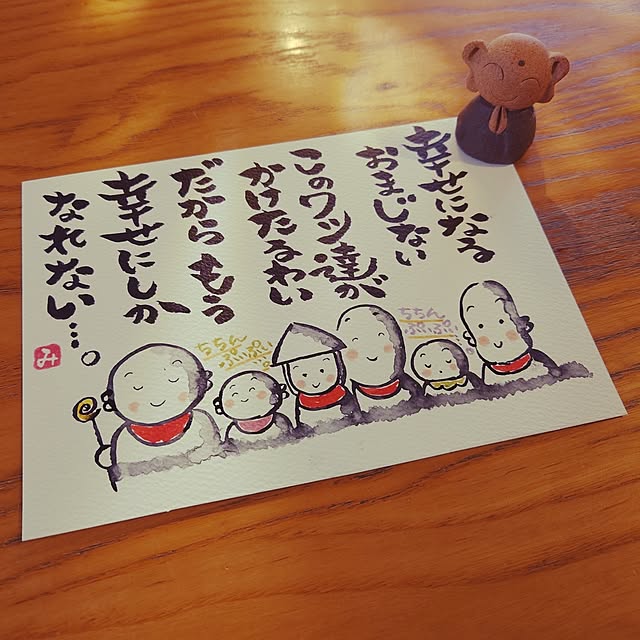 幸せになる
おまじない
このワシ達が
かけたるわい
だからもう
幸せにしか
なれない…。
み
ちちん
ぷいぷい
ちちん
ぷいぷい